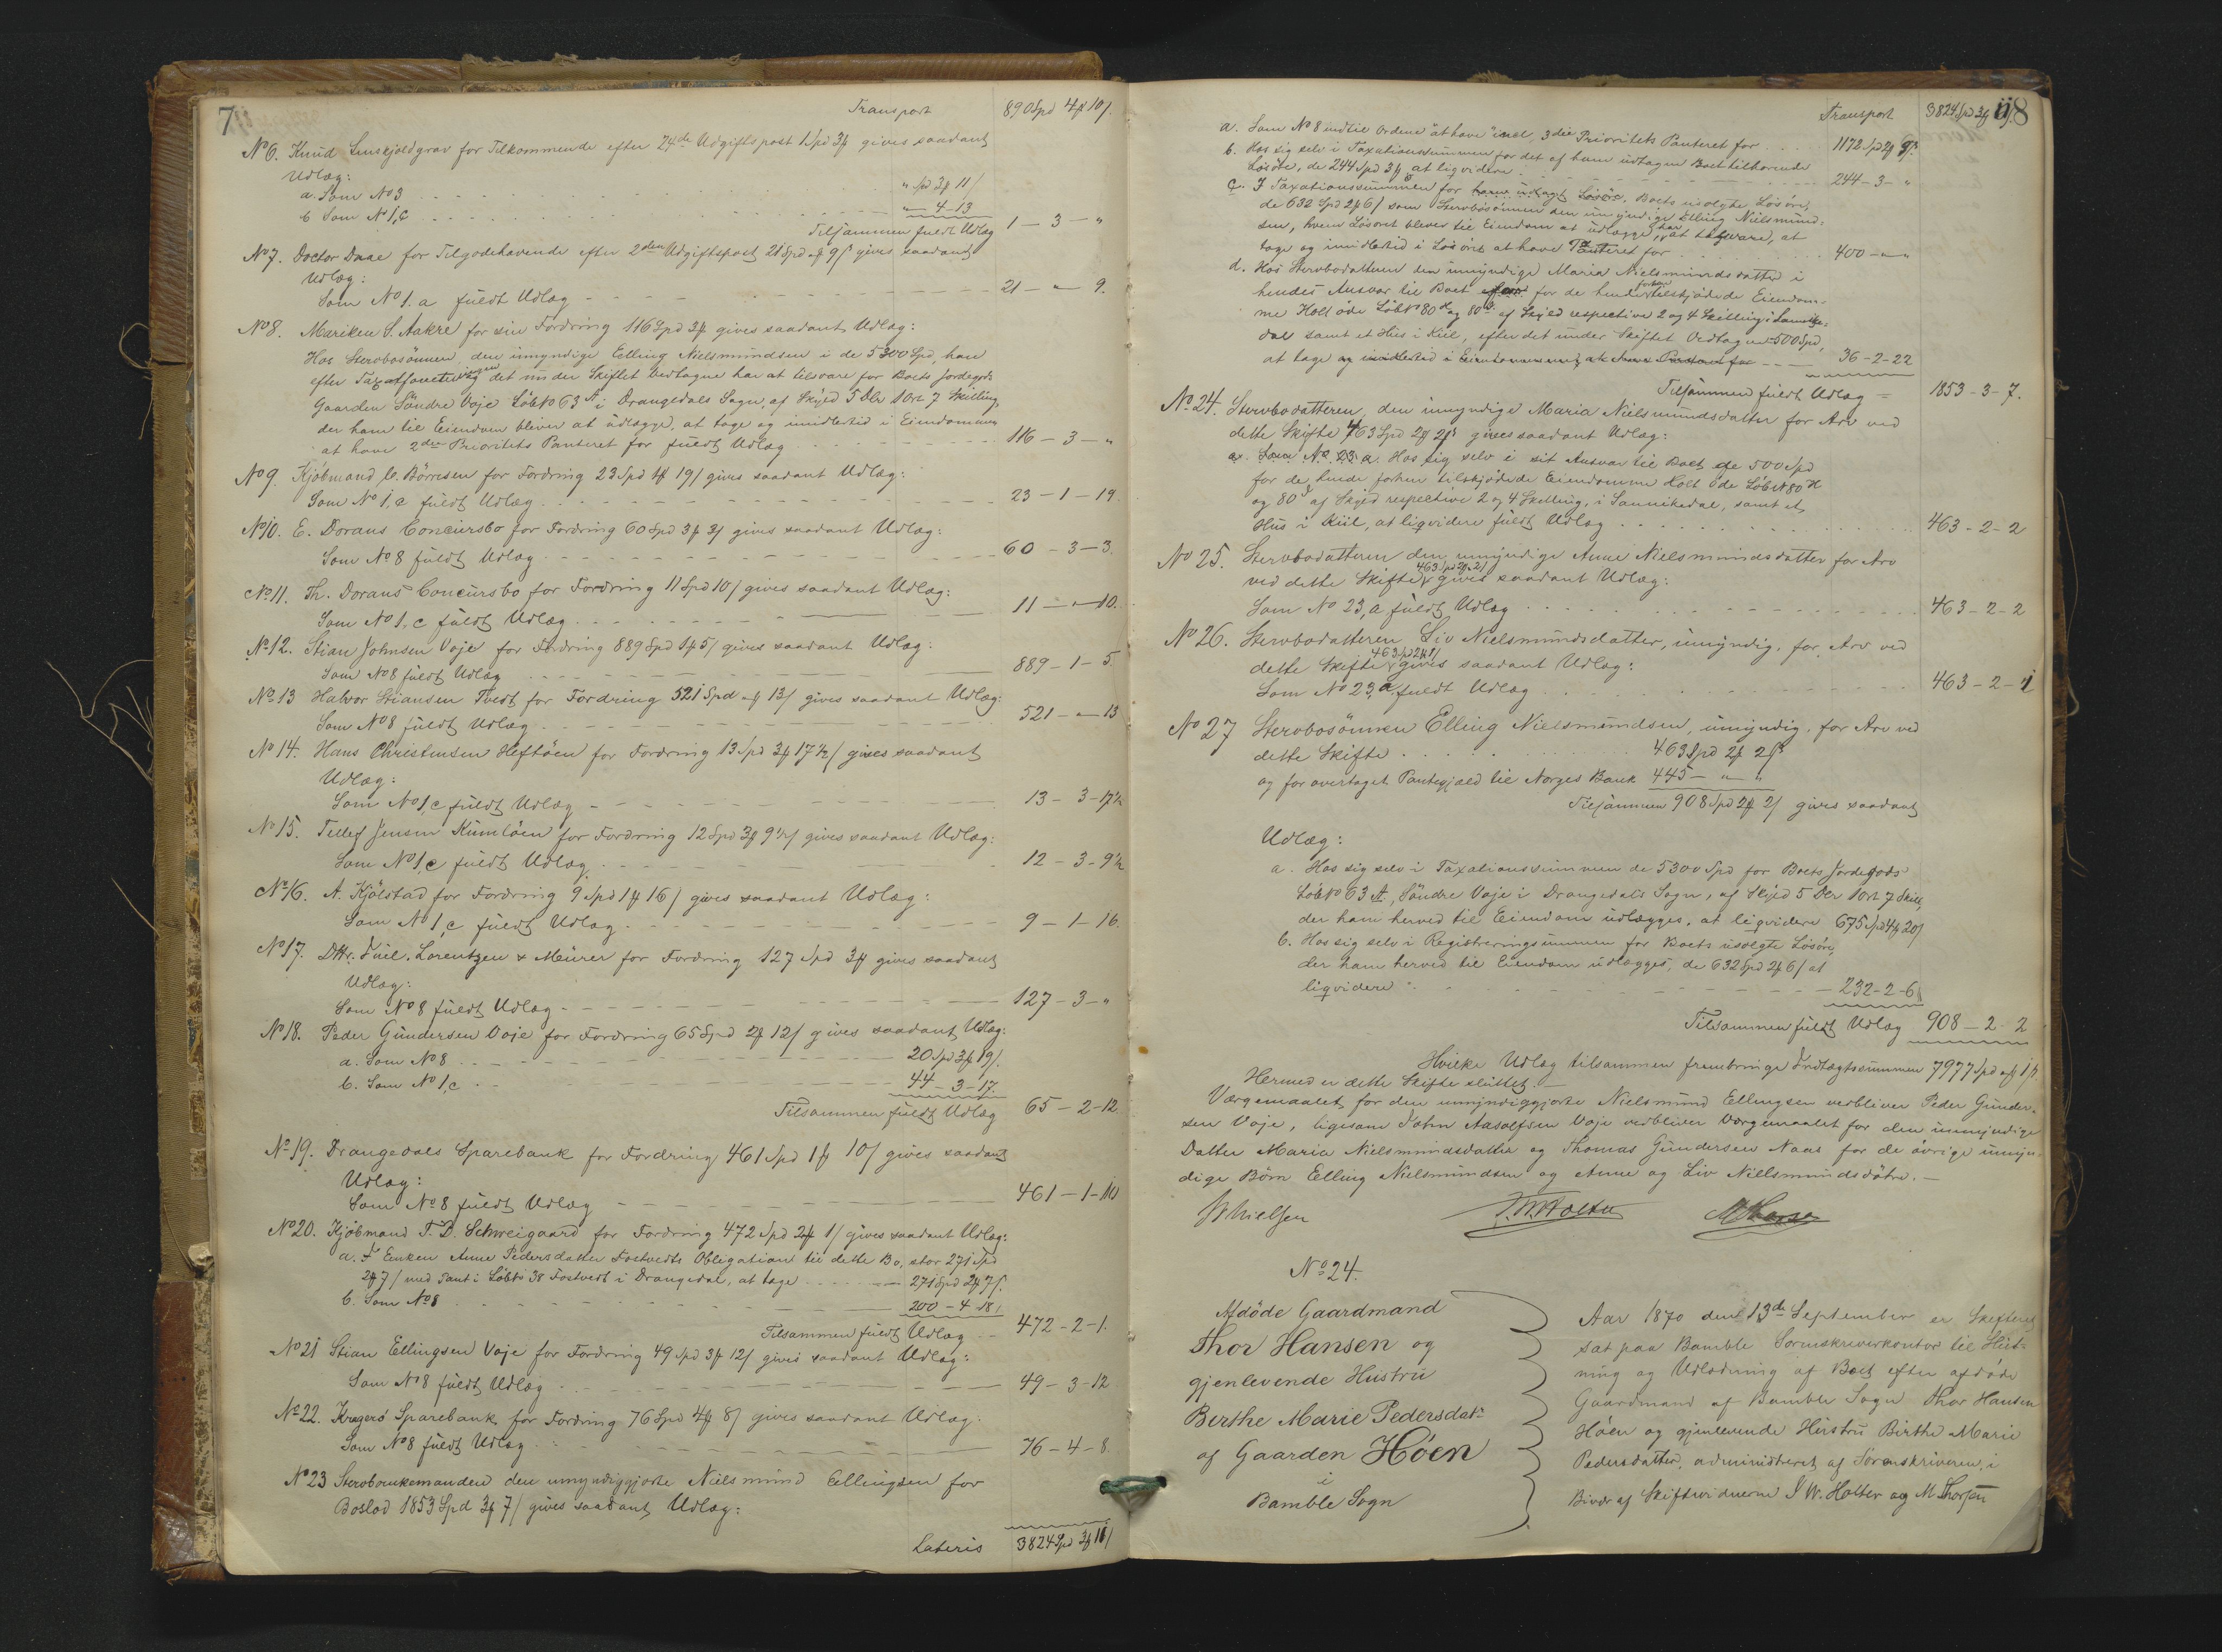 7
Transport 890 Spd 4 ƒ 10/.
No 6. Knud Lensejoldgrav for Tilkommende efter 24de Udgiftspost 1 Spd 3ƒ gives saadant
Udlæg:
a. Som No 3 " Spd 3ƒ 11/
b Som No 1,c " 4 - 13
Tilsammen fuldt Udlæg 1 - 3 - "
No 7. Doctor Daae for Tilgodehavende efter 2den Udgiftspost 21 Spd " ƒ 9/ gives saadant
Udlæg:
Som No 1. a fuldt Udlæg 21 - " - 9.
No 8. Mariken S. Aakre for sin Fordring 116 Spd 3ƒ gives saadant Udlæg:
Hos Stervbosönnen, den umyndige Elling Nielsmundsen i de 5300 Spd, han
efter Taxationen det under Skiftet vedtagne har at tilsvare for Boets Jordegods
Gaarden Söndre Voje Löb No 63 A i Drangedals Sogn, af Skyld 5 Dlr 1 Ort 7 Skilling,
der ham til Eiendom bliver at udlægge, at tage og imidlertid i Eiendommen
at have 2den Prioritets Panteret for fuldt Udlæg 116 - 3 - "
No 9. Kjöbmand C. Börresen for Fordring 23 Spd 1ƒ 19/ gives saadant Udlæg:
Som No 1, c fuldt Udlæg 23 - 1 - 19.
No 10. E. Dorans Concursbo for Fordring 60 Spd 3ƒ 3/ gives saadant Udlæg:
Som No 8 fuldt Udlæg 60 - 3 - 3.
No 11. Th. Dorans Concursbo for Fordring 11 Spd 10/ gives saadant Udlæg:
Som No 1, c fuldt Udlæg 11 - " - 10.
No 12. Stian Johnsen Voje for Fordring 889 Spd 1ƒ 5/ gives saadant Udlæg:
Som No 8 fuldt Udlæg 889 - 1 - 5.
No 13 Halvor Stiansen Tvedt for Fordring 521 Spd " ƒ 13/ gives saadant Udlæg:
Som No 8 fuldt Udlæg 521 - " - 13
No 14. Hans Christensen Heftöen for Fordring 13 Spd 3ƒ 17 1/2/ gives saadant
Udlæg:
Som No 1, c fuldt Udlæg 13 - 3 - 17 1/2
No 15. Tellef Jensen Kumlöen for Fordring 12 Spd 3ƒ 9 1/2/ gives saadant Udlæg:
Som No 1, c fuldt Udlæg 12 - 3 - 9 1/2
No 16. A. Kjölstad for Fordring 9 Spd 1ƒ 16/ gives saadant Udlæg:
Som No 1, c fuldt Udlæg 9 - 1 - 16.
No 17. Lorentzen & Meürer for Fordring 127 Spd 3ƒ gives saadant
Udlæg:
Som No 8 fuldt Udlæg 127 - 3 - "
No 18. Peder Gundersen Voje for Fordring 65 Spd 2ƒ 12/ gives saadant Udlæg:
a. Som No 8 20 Spd 3ƒ 19/.
b. Som No 1, c 44 - 3 - 17
Tilsammen fuldt Udlæg 65 - 2 - 12.
No 19. Drangedals Sparebank for Fordring 461 Spd 1ƒ 10/ gives saadant
Udlæg:
Som No 8 fuldt Udlæg 461 - 1 - 10
No 20. Kjöbmand T. D. Schweigaard for Fordring 472 Spd 2ƒ 1/ gives saadant Udlæg:
a. I Enken Anne Pedersdatter Fostvedts Obligation til dette Bo, stor 271 Spd
2ƒ 7/ med Pant i Löb No 38 Fostvedt i Drangedal, at tage 271 Spd 2ƒ 7/.
b. Som No 8 200 - 4 - 18/
Tilsammen fuldt Udlæg 472 - 2 - 1.
No 21 Stian Ellingsen Voje for Fordring 49 Spd 3ƒ 12/ gives saadant Udlæg:
Som No 8 fuldt Udlæg 49 - 3 - 12
No 22. Kragerö Sparebank for Fordring 76 Spd 4ƒ 8/ gives saadant Udlæg.
Som No 8 fuldt Udlæg 76 - 4 - 8.
No 23 Stervboenkemanden den umyndiggjorte Nielsmund Ellingsen for
Boslod 1853 Spd 3ƒ 7/ gives saadant Udlæg:
Lateris 3824 Spd 3ƒ 11/
8
Transport 3824 Spd 3ƒ 11/
a. Som No 8 indtil Ordene "at have" incl, 3die Prioritets Panteret for 1172 Spd 2ƒ 9/.
b. Hos sig selv i Taxationssummen for det af ham udtagne Boet tilhörende
Lösöre, de 244 Spd 3ƒ at liqvidere 244 - 3 - "
c. I Taxationssummen for Boets usolgte Lösöre,
de 632 Spd 2ƒ 6/ som Stervbosönnen den umyndige Elling Nielsmund-
sen, hvem Lösöret bliver til Eiendom at udlægge, har at tilsvare, at
tage og imidlertid i Lösöret at have Panteret for 400 - " - "
d. Hos Stervbodatteren den umyndige Maria Nielsmundsdatter i
hendes Ansvar til Boet for de hende forhen tilskjödede Eiendom-
me Holt öde Löb No 80 H og 80 af Skyld respective 2 og 4 Skilling i Sannike-
dal samt et Hus i Kiil, efter det under Skiftet Vedtagne 500 Spd,
at tage og imidlertid i Eiendommene at have Panteret for 36 - 2 - 22
Tilsammen fuldt Udlæg 1853 - 3 - 7.
No 24. Stervbodatteren, den umyndige Maria Nielsmundsdatter for Arv ved
dette Skifte 463 Spd 2ƒ 2/ gives saadant Udlæg:
a. Som No 23 a. Hos sig selv i sit Ansvar til Boet de 500 Spd
for de hende forhen tilskjödede Eiendomme Holt öde Löb No 80 H
og 80 af Skyld respective 2 og 4 Skilling, i Sannikedal, samt et
Hus i Kiil, at liqvidere fuldt Udlæg 463 - 2 - 2
No 25. Stervbodatteren den umyndige Anne Nielsmundsdatter for Arv
ved dette Skifte 463 Spd 2ƒ 2/ gives saadant Udlæg:
Som No 23, a fuldt Udlæg 463 - 2 - 2
No 26. Stervbodatteren Liv Nielsmundsdatter, umyndig, for Arv ved
dette Skifte 463 Spd 2ƒ 1/ gives saadant Udlæg:
Som No 23, a fuldt Udlæg 463 - 2 - 1
No 27 Stervbosönnen Elling Nielsmundsen, umyndig, for Arv ved
dette Skifte 463 Spd 2ƒ 2/
og for overtaget Pantegjæld til Norges Bank 445 - " - "
Tilsammen 908 Spd 2ƒ 2/ gives saadant
Udlæg:
a. Hos sig selv i Taxationssummen de 5300 Spd for Boets Jordegods
Löb No 63 A, Söndre Voje i Drangedals Sogn, af Skyld 5 Dlr 1 Ort 7 Skill,
der ham herved til Eiendom udlægges, at liqvidere 675 Spd 4ƒ 20/
b. Hos sig selv i Registreringssummen for Boets usolgte Lösöre,
der ham herved til Eiendom udlægges, de 632 Spd 2ƒ 6/ at
liqvidere 232 - 2 - 6
Tilsammen fuldt Udlæg 908 - 2 - 2
Hvilke Udlæg tilsammen frembringe Indtægtssummen 7977 Spd " ƒ 1/.
Hermed er dette Skifte sluttet.
Værgemaalet for den umyndiggjorte Nielsmund Ellingsen verbliver Peder Gunder-
sen Voje, ligesom John Aasolfsen Voje verbliver Værgemaalet for den umyndige
Datter Maria Nielsmundsdatter og Thomas Gundersen Naas for de övrige umyn-
dige Börn Elling Nielsmundsen og Anne og Liv Nielsmundsdötre. —
Nielsen J. W. Holter M Thorsen
No 24.
Afdöde Gaardmand
Thor Hansen og
gjenlevende Hustru
Berthe Marie Pedersdatr
af Gaarden Höen
i
Bamble Sogn
Aar 1870 den 13de September er Skifteret
sat paa Bamble Sorenskriverkontor til Slut-
ning og Udlodning af Boet efter afdöde
Gaardmand af Bamble Sogn Thor Hansen
Höen og gjenlevende Hustru Birthe Marie
Pedersdatter, administreret af Sorenskriveren, i
Bivær af Skiftevidnerne J W. Holter og M Thorsen